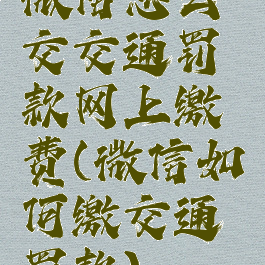 微信怎么
交交通罚
款网上缴
费(微信如
何缴交通
罚款)